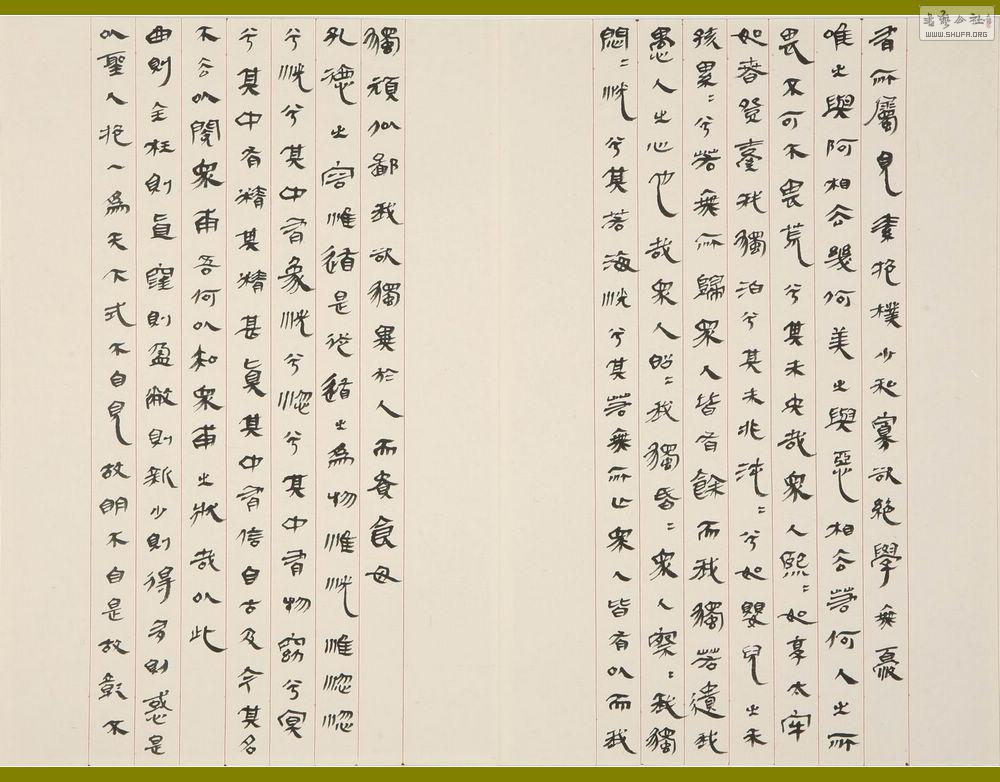 有所屬見素抱樸少私寡欲絕學無憂
唯之與阿相去幾何美之與惡相去若何人之所
畏不可不畏荒兮其未央哉衆人熙〻如享太牢
如春登臺我獨泊兮其未兆沌〻兮如嬰兒之未
孩累〻兮若無所歸衆人皆有餘而我獨若遺我
愚人之心也哉衆人昭〻我獨昏〻衆人察〻我獨
悶〻恍兮其若海恍兮其若無所止衆人皆有以而我
獨頑似鄙我欲獨異於人而貴食母
孔德之容惟道是從道之為物惟恍惟惚惚
兮恍兮其中有象恍兮惚兮其中有物窈兮冥
兮其中有精其精甚真其中有信自古及今其名
不去以閱衆甫吾何以知衆甫之狀哉以此
曲則全枉則直窪則盈敝則新少則得多則惑是
以聖人抱一為天下式不自見故明不自是故彰不
书艺公社
WWW.SHUFA.ORG